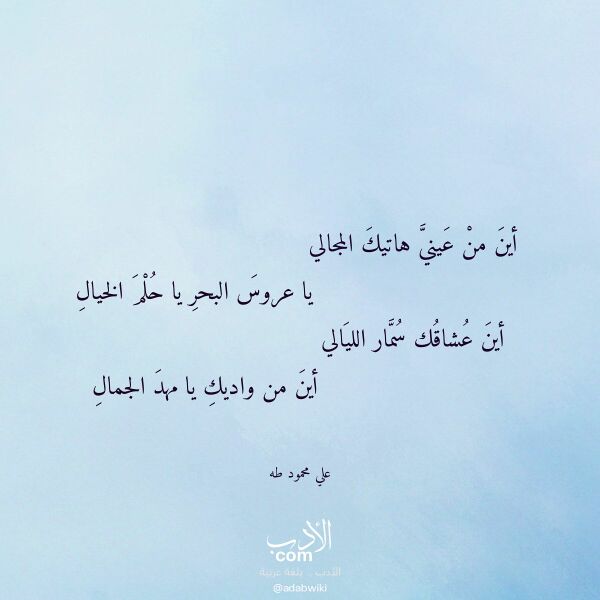 أينَ منْ عَينيَّ هاتيكَ المجالي
يا عروسَ البحرِ يا حُلْمَ الخيالِ
أينَ عُشاقُك سُمَّار الليَالي
أينَ من واديكِ يا مهدَ الجمالِ
علي محمود طه
الأدب
com
الأدب .. بلغة عربية
@adabwiki